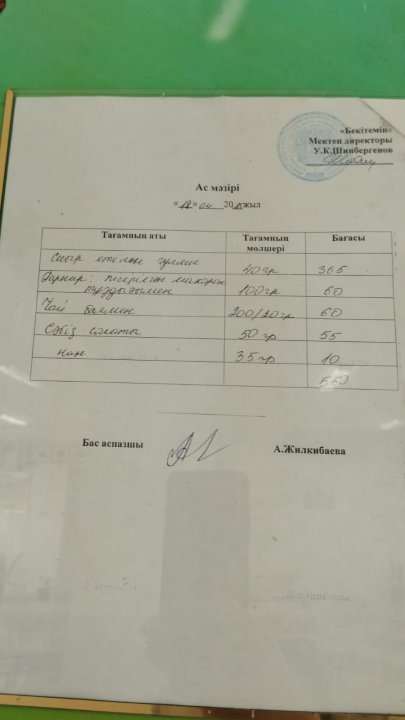 «Бекітемін»
Мектеп директоры
У.К.Шинбергенов
Ас мәзірі
«18» 04 2025 жыл
Тағамның аты Тағамның мөлшері Бағасы
Сиыр етінен гуляш 40гр 365
Гарнир: пісірілген макарон тұздығымен 100гр 60
Чай балмен 200/20гр 60
Сәбіз салаты 50 гр 55
нан 35 гр 10
550
Бас аспазшы А.Жилкибаева